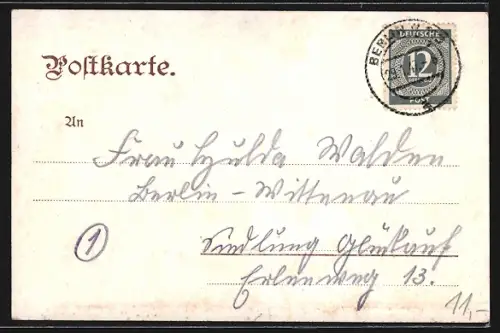 DEUTSCHE
12
POST
BERLIN
Postkarte.
An
Frau Hulda Walden
Berlin - Wittenau
1
Siedlung Glückauf
Erlenweg 13.
11,-